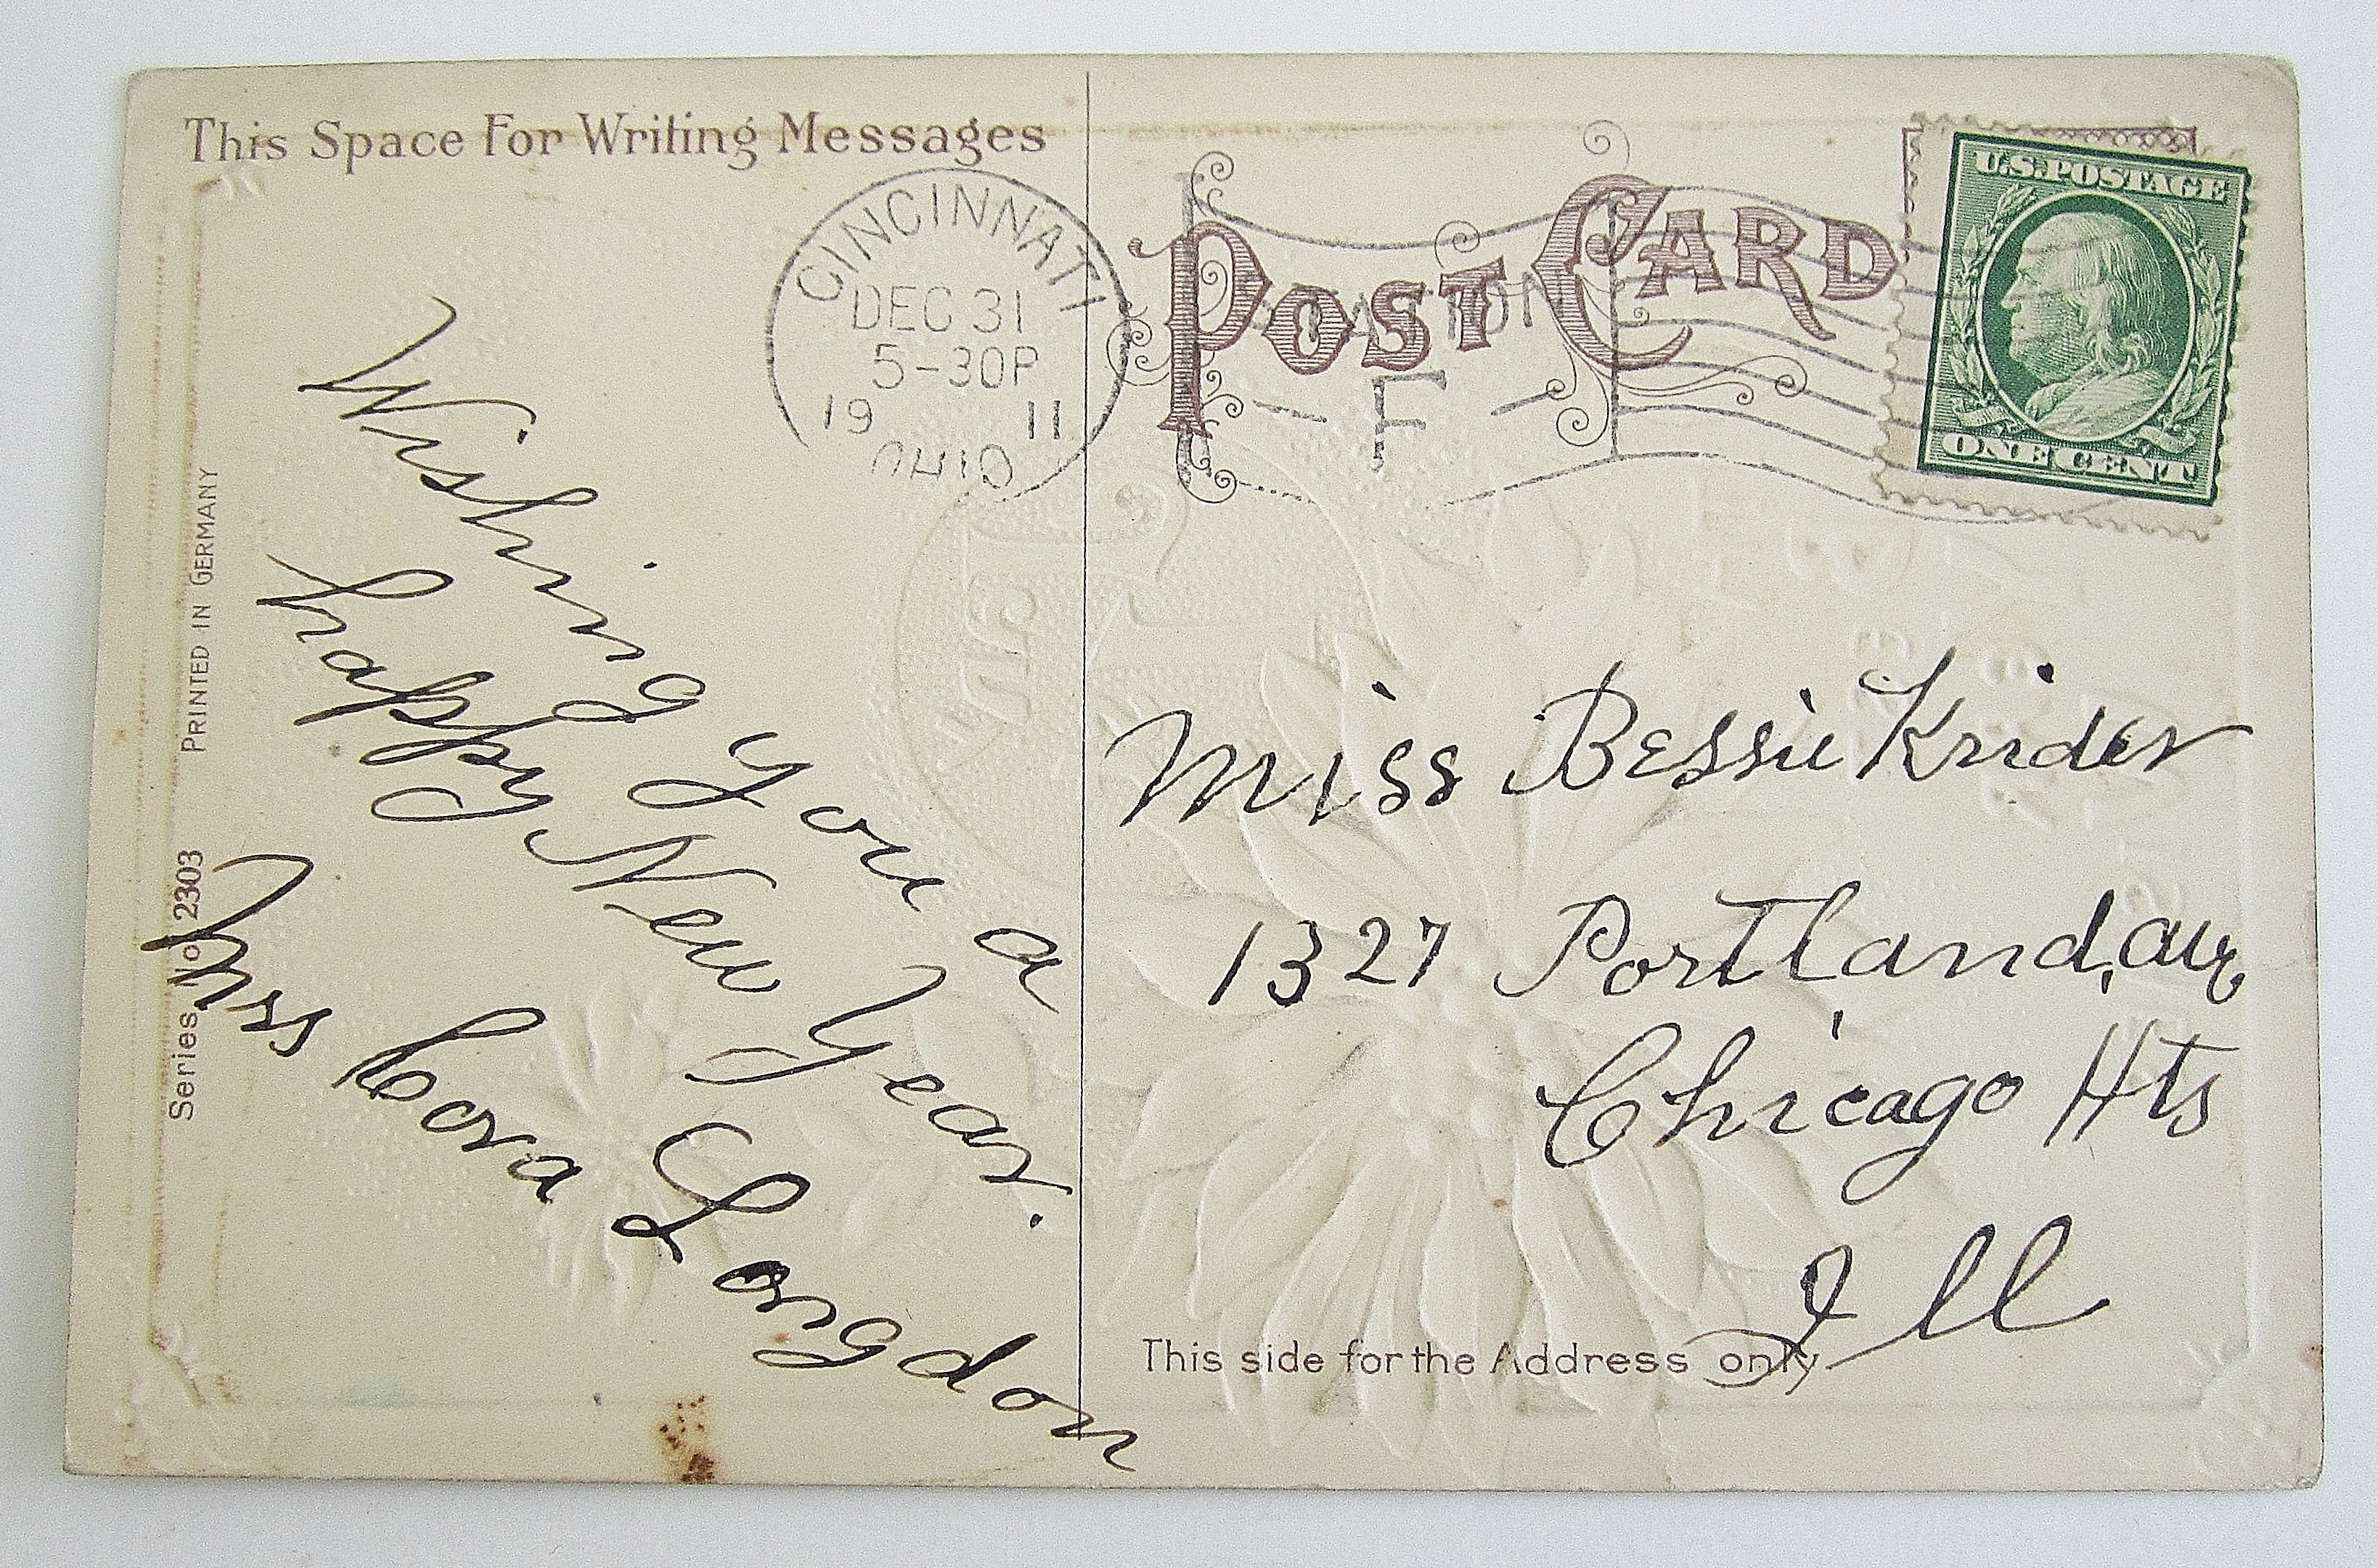 This Space For Writing Messages
CINCINNATI
DEC 31
5-30P
19 11
OHIO
STATION
F
POST CARD
U.S. POSTAGE
ONE CENT
PRINTED IN GERMANY
Series No 2303
Wishing you a
happy New Year.
Mrs Cora Longdon
Miss Bessie Krider
1327 Portland, ave
Chicago Hts
Ill
This side for the Address only